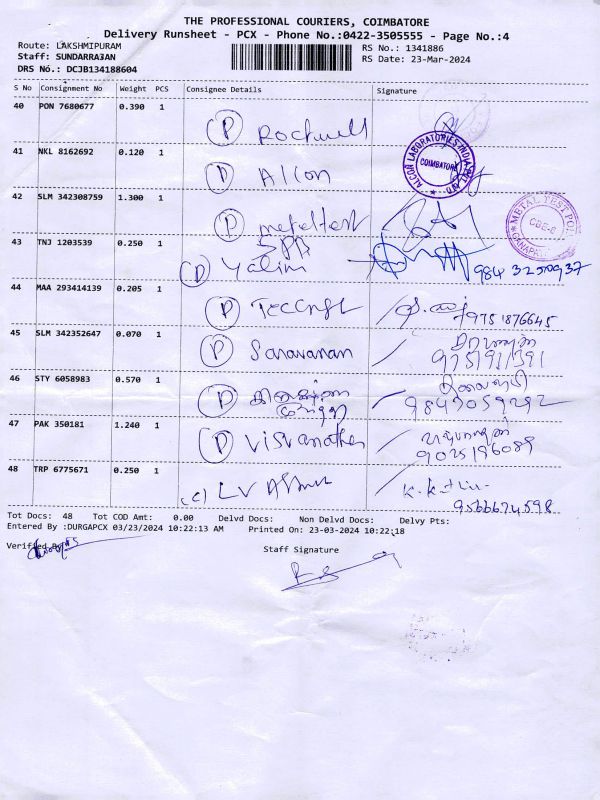 THE PROFESSIONAL COURIERS, COIMBATORE
Delivery Runsheet - PCX - Phone No.:0422-3505555 - Page No.:4
Route: LAKSHMIPURAM
RS No.: 1341886
Staff: SUNDARRAJAN
RS Date: 23-Mar-2024
DRS No.: DCJB134188604
S No Consignment No Weight PCS Consignee Details Signature
40 PON 7680677 0.390 1
(P) Rockwell
41 NKL 8162692 0.120 1
(P) Alcon
ALCON LABORATORIES INDIA PVT. LTD
COIMBATORE
42 SLM 342308759 1.300 1
(P) metaltest
METAL TEST
CBE-6
43 TNJ 1203539 0.250 1
SPA
(D) Yalini
44 MAA 293414139 0.205 1
(P)
9751876645
45 SLM 342352647 0.070 1
(P) Saravanan
9751911391
46 STY 6058983 0.570 1
(P)
9843059292
47 PAK 350181 1.240 1
(P) Visvanathan
9025196089
48 TRP 6775671 0.250 1
(C) LV
9566674598
Tot Docs: 48 Tot COD Amt: 0.00 Delvd Docs: Non Delvd Docs: Delvy Pts:
Entered By :DURGAPCX 03/23/2024 10:22:13 AM Printed On: 23-03-2024 10:22:18
Verified By
Staff Signature